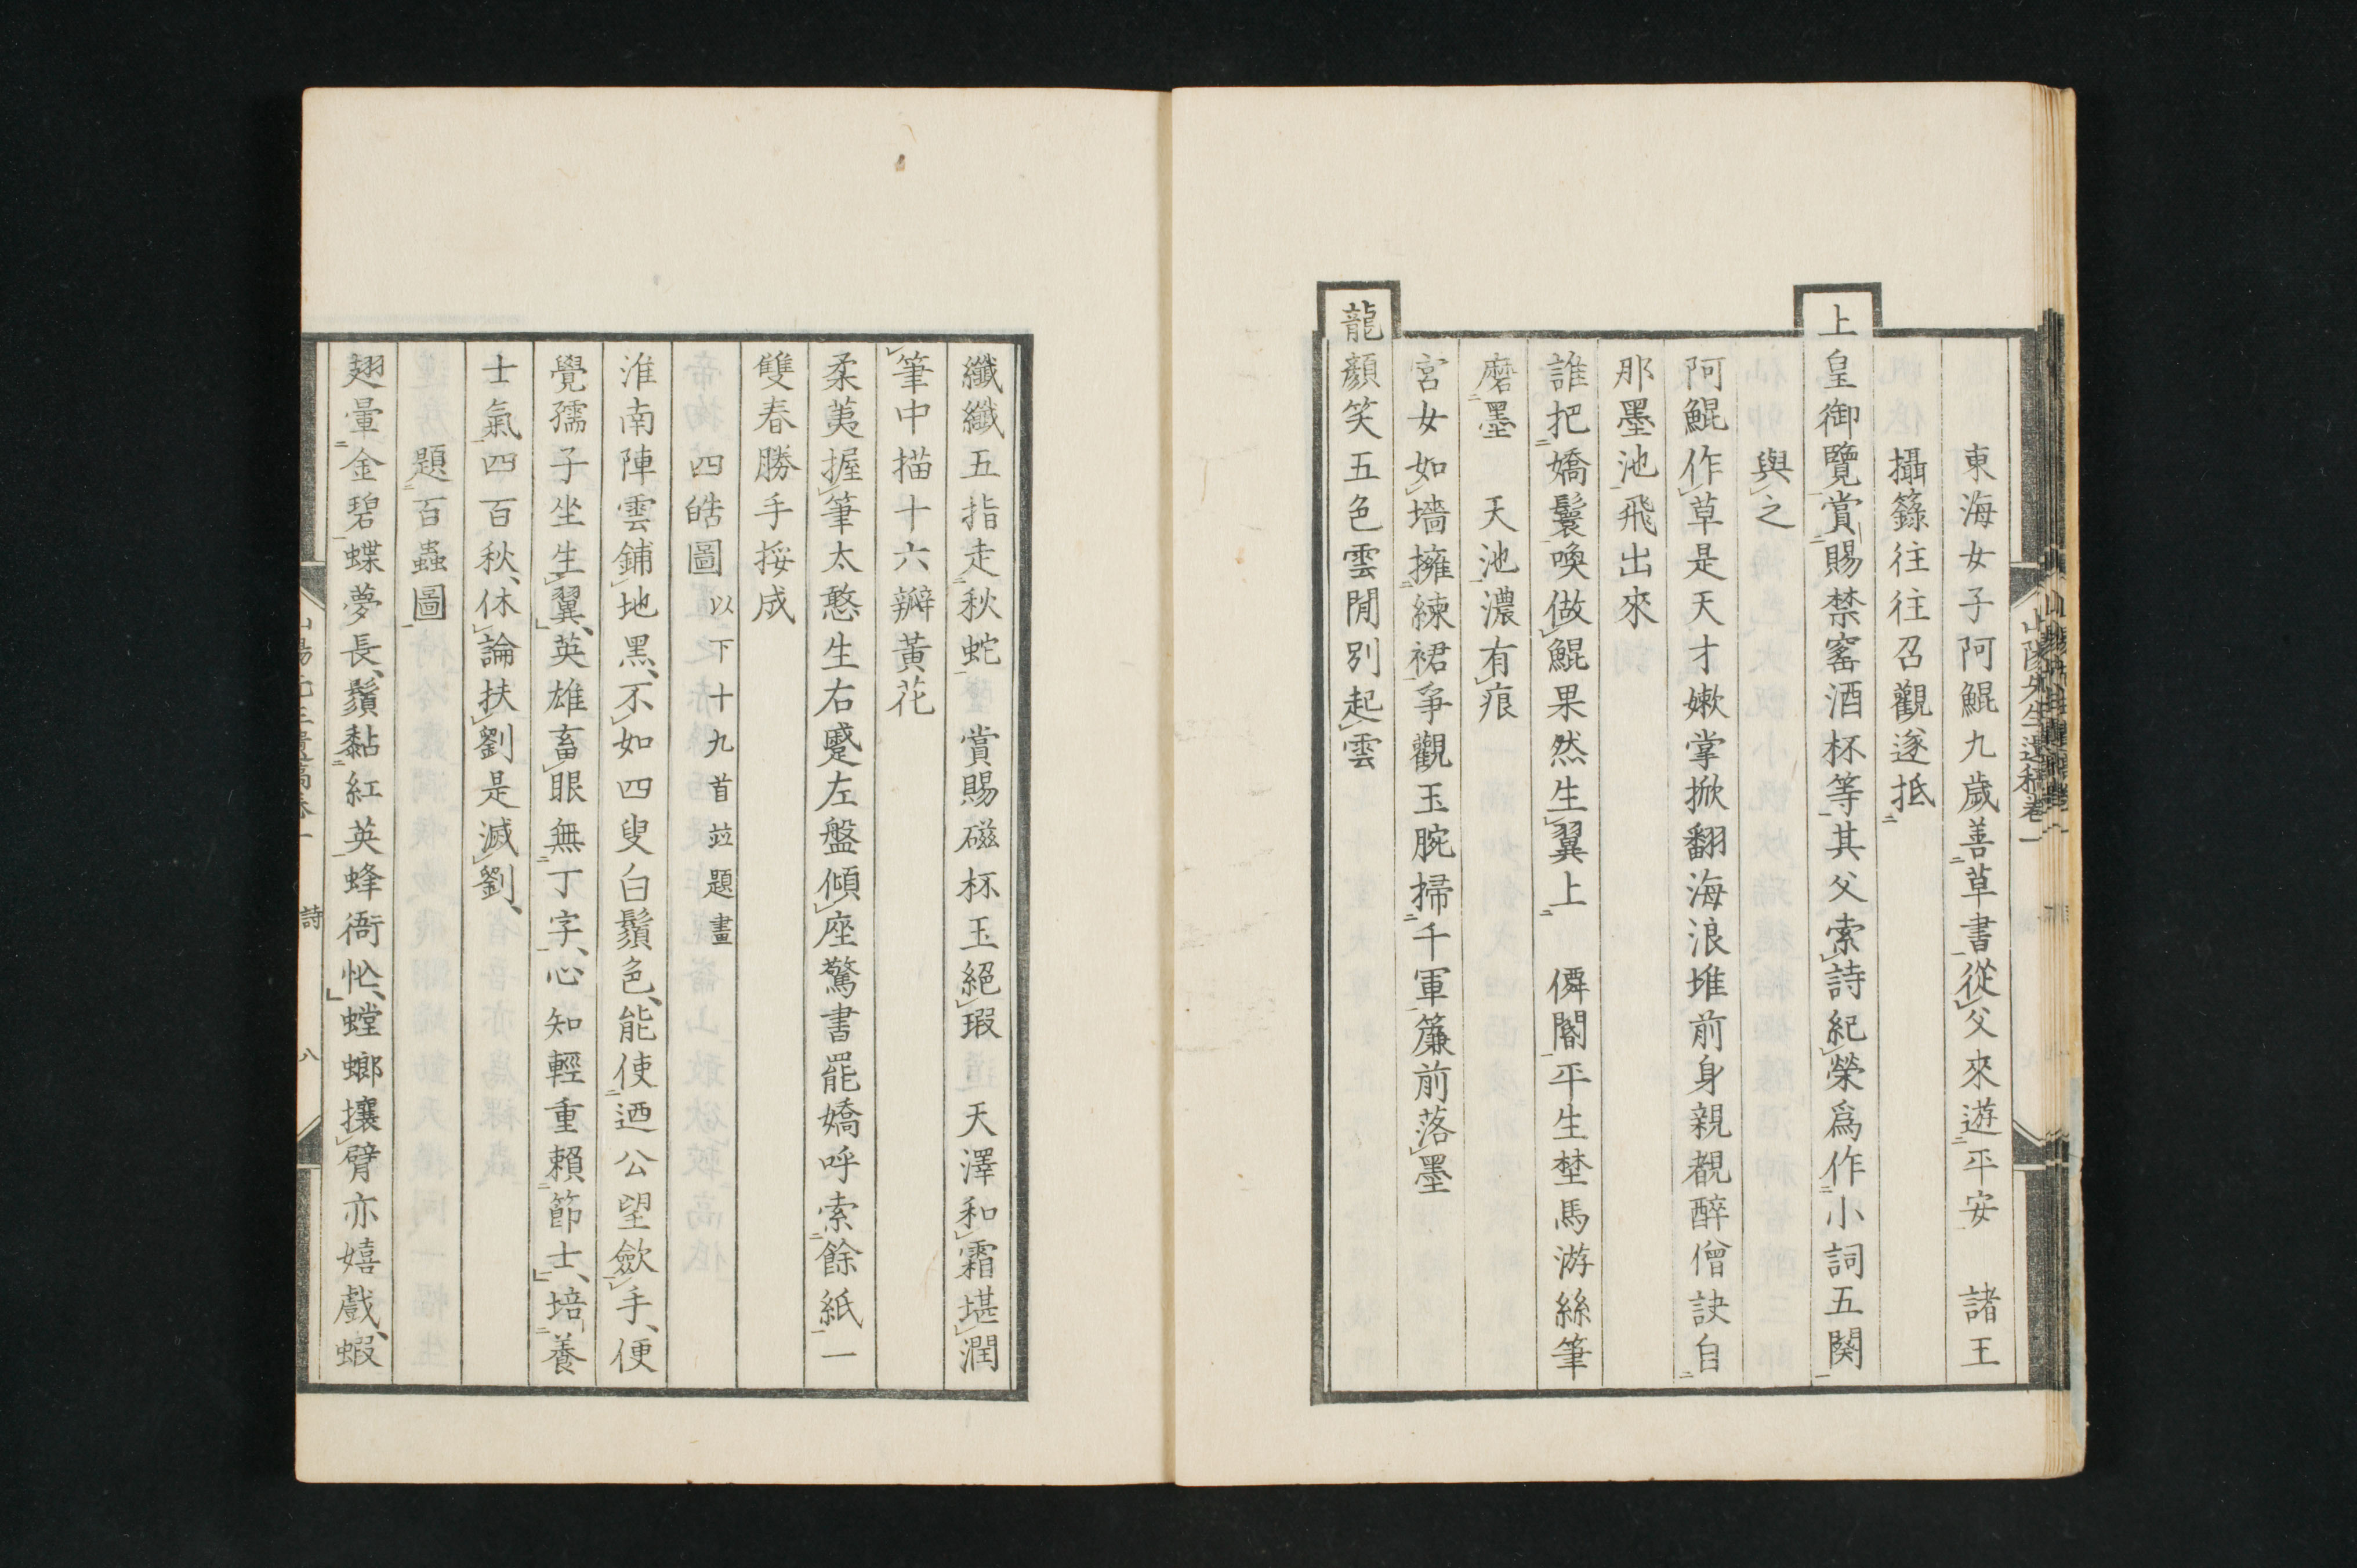 東海女子阿鯤九歲善草書從父來遊平安 諸王
攝籙往往召觀遂抵
上皇御覽賞賜禁窰酒杯等其父索詩紀榮爲作小詞五闋
與之
阿鯤作草是天才嫩掌掀翻海浪堆前身親覩醉僧訣自
那墨池飛出來
誰把嬌鬟喚做鯤果然生翼上 僲閽平生埜馬游絲筆
磨墨 天池濃有痕
宮女如墻擁練裙爭觀玉腕掃千軍簾前落墨
龍顏笑五色雲閒別起雲
山陽先生遺稿卷一
纖纖五指走秋蛇 賞賜磁杯玉絕瑕 天澤和霜堪潤
筆中描十六瓣黃花
柔荑握筆太憨生右蹙左盤傾座驚書罷嬌呼索餘紙一
雙春勝手挼成
四皓圖 以下十九首竝題畫
淮南陣雲鋪地黑、不如四叟白鬚色、能使迺公望歛手、便
覺孺子坐生翼、英雄畜眼無丁字、心知輕重賴節士、培養
士氣四百秋、休論扶劉是滅劉、
題百蟲圖
翅暈金碧蝶夢長、鬚黏紅英蜂衙忙、螳螂攘臂亦嬉戲、蝦
詩 八